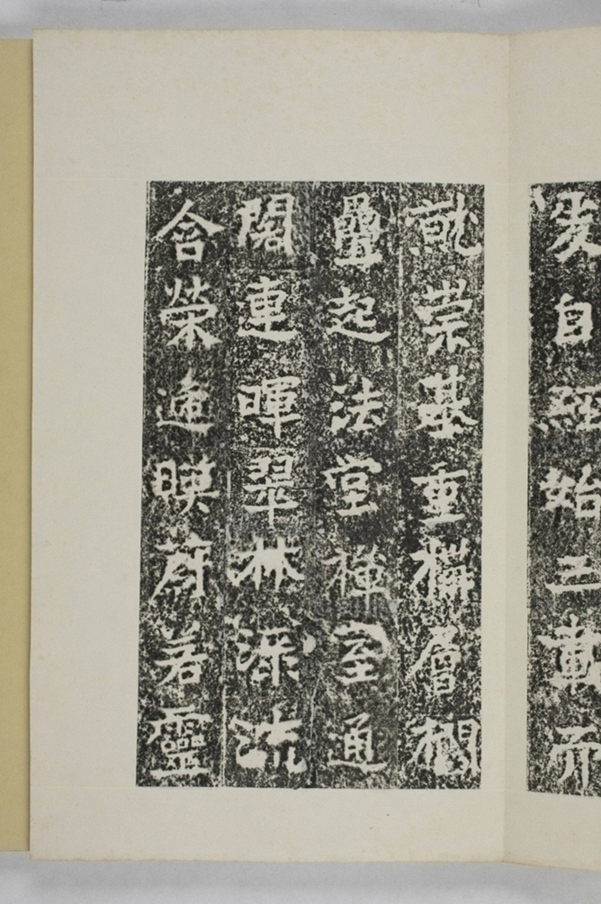 爰自經始二載而
就崇基重構層
疊起法堂禪室通
閣連暉翠林淥流
含榮遞暎蔚若靈